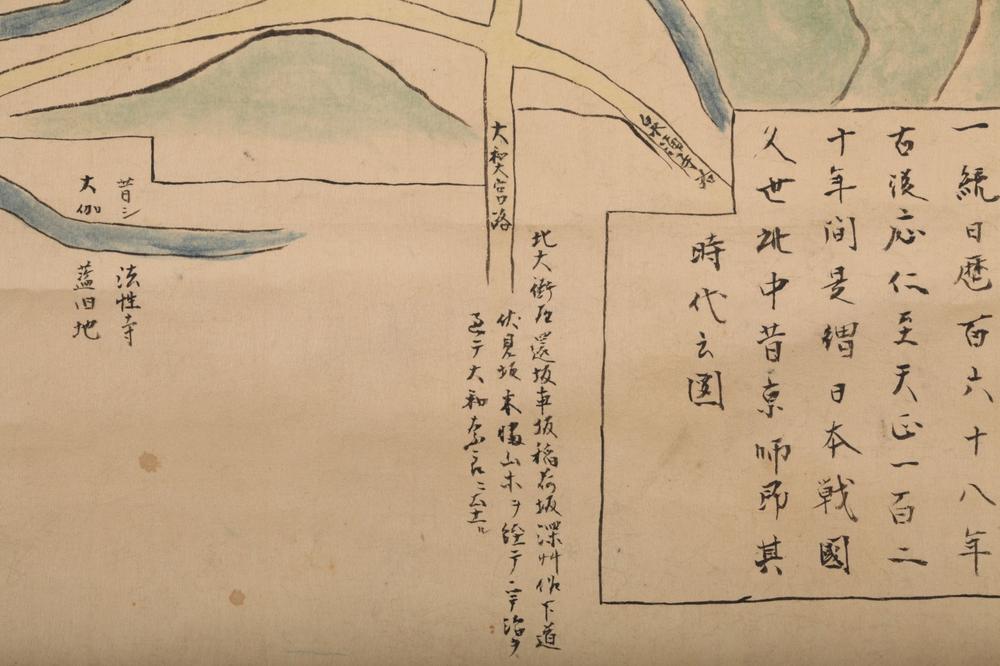 一統日暦百六十八年
古後応仁至天正一百二
十年間是謂日本戦國
久世此中昔京师即其
時代之圖
大和大宮路
北大衝石還坂車坂稲荷坂深艸伯下道
伏見坂木幡山ホヲ経テ宇治ヲ
過テ大和奈良ニ
昔シ法性寺
大伽藍旧地